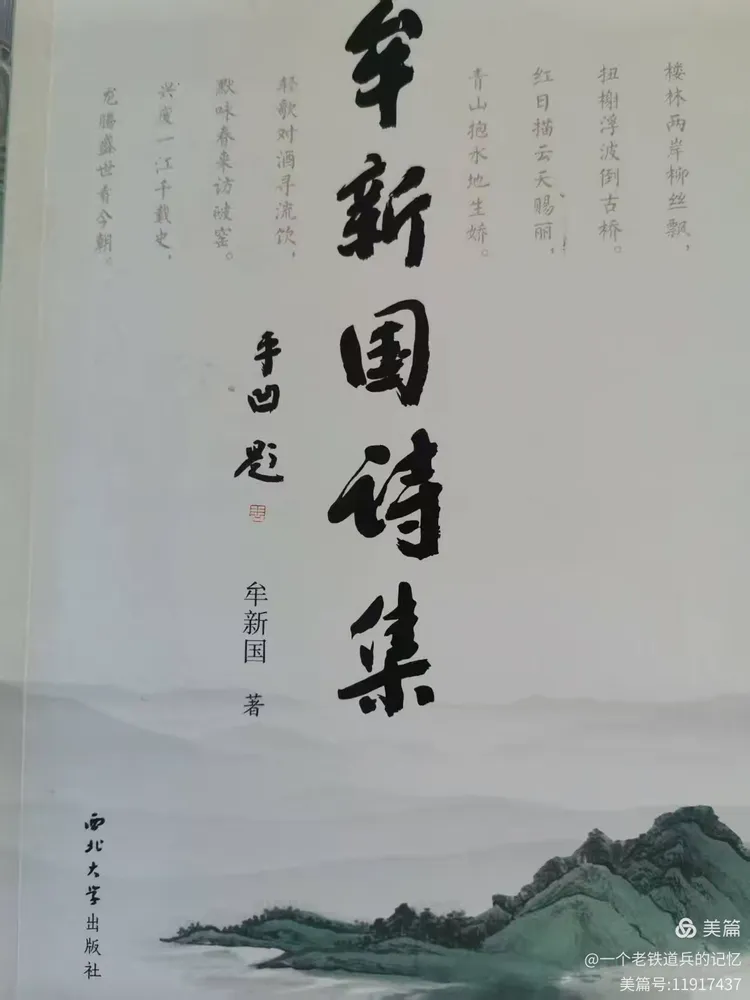 楼林两岸柳丝飘，
扭榭浮波倒古桥。
红日描云天赐丽，
青山抱水地生娇。
牟新国诗集
轻歌对酒寻流饮，
默咏春来访破窑。
兴废一江千载史，
龙腾盛世看今朝。
平凹题
牟新国 著
西北大学出版社
美篇
@一个老铁道兵的记忆
美篇号:11917437